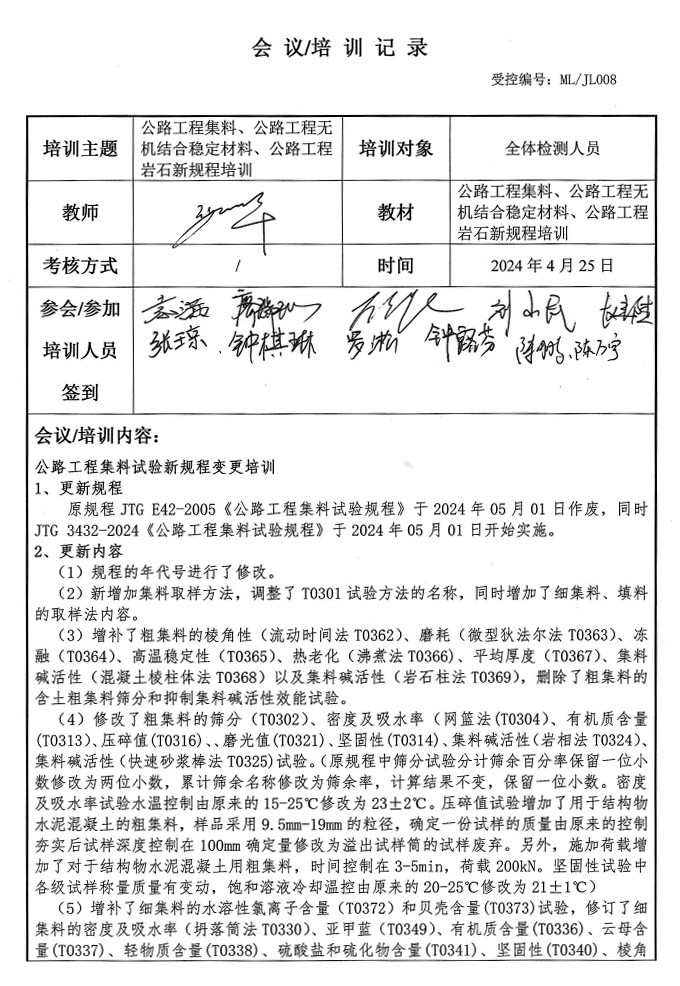 会 议/培 训 记 录
受控编号：ML/JL008
培训主题
公路工程集料、公路工程无
机结合稳定材料、公路工程
岩石新规程培训
培训对象
全体检测人员
教师
教材
公路工程集料、公路工程无
机结合稳定材料、公路工程
岩石新规程培训
考核方式
/
时间
2024 年 4 月 25 日
参会/参加
培训人员
签到
刘小民
张琼 钟棋琳 罗淞 钟露芬 陈鹏 陈万宇
会议/培训内容：
公路工程集料试验新规程变更培训
1、更新规程
原规程 JTG E42-2005《公路工程集料试验规程》于 2024 年 05 月 01 日作废，同时
JTG 3432-2024《公路工程集料试验规程》于 2024 年 05 月 01 日开始实施。
2、更新内容
（1）规程的年代号进行了修改。
（2）新增加集料取样方法，调整了 T0301 试验方法的名称，同时增加了细集料、填料
的取样法内容。
（3）增补了粗集料的棱角性（流动时间法 T0362）、磨耗（微型狄法尔法 T0363）、冻
融（T0364）、高温稳定性（T0365）、热老化（沸煮法 T0366）、平均厚度（T0367）、集料
碱活性（混凝土棱柱体法 T0368）以及集料碱活性（岩石柱法 T0369），删除了粗集料的
含土粗集料筛分和抑制集料碱活性效能试验。
（4）修改了粗集料的筛分（T0302）、密度及吸水率（网篮法(T0304）、有机质含量
(T0313）、压碎值(T0316）、、磨光值(T0321）、坚固性(T0314）、集料碱活性（岩相法 T0324）、
集料碱活性（快速砂浆棒法 T0325)试验。（原规程中筛分试验分计筛余百分率保留一位小
数修改为两位小数，累计筛余名称修改为筛余率，计算结果不变，保留一位小数。密度
及吸水率试验水温控制由原来的 15-25℃修改为 23±2℃。压碎值试验增加了用于结构物
水泥混凝土的粗集料，样品采用 9.5mm-19mm 的粒径，确定一份试样的质量由原来的控制
夯实后试样深度控制在 100mm 确定量修改为溢出试样筒的试样废弃。另外，施加荷载增
加了对于结构物水泥混凝土用粗集料，时间控制在 3-5min，荷载 200kN。坚固性试验中
各级试样称量质量有变动，饱和溶液冷却温控由原来的 20-25℃修改为 21±1℃）
（5）增补了细集料的水溶性氯离子含量（T0372）和贝壳含量(T0373)试验，修订了细
集料的密度及吸水率（坍落筒法 T0330）、亚甲蓝（T0349）、有机质含量(T0336）、云母含
量(T0337）、轻物质含量(T0338）、硫酸盐和硫化物含量(T0341）、坚固性(T0340）、棱角